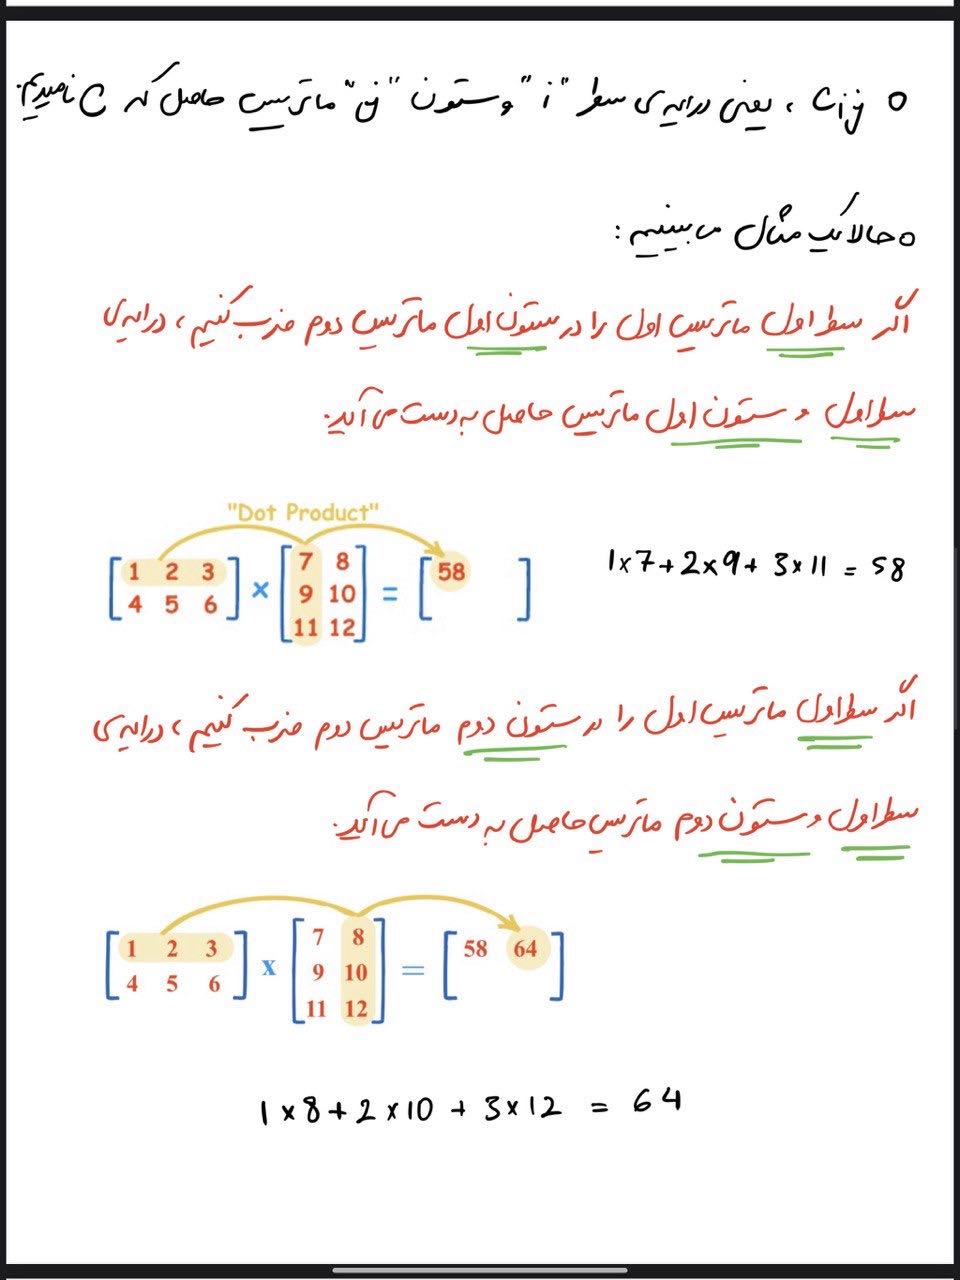 ○ Cij ، یعنی درایه‌ی سطر "i" و ستون "j" ماتریس حاصل که C نامیدیم.
○ حالا یک مثال می‌بینیم:
اگر سطر اول ماتریس اول را در ستون اول ماتریس دوم ضرب کنیم، درایه‌ی
سطر اول و ستون اول ماتریس حاصل به دست می‌آید.
"Dot Product"
[1 2 3 × [7 8 = [58 ]
4 5 6] 9 10
11 12]
1×7+2×9+3×11 = 58
اگر سطر اول ماتریس اول را در ستون دوم ماتریس دوم ضرب کنیم، درایه‌ی
سطر اول و ستون دوم ماتریس حاصل به دست می‌آید.
[1 2 3 x [7 8 = [58 64]
4 5 6] 9 10
11 12]
1×8+2×10+3×12 = 64